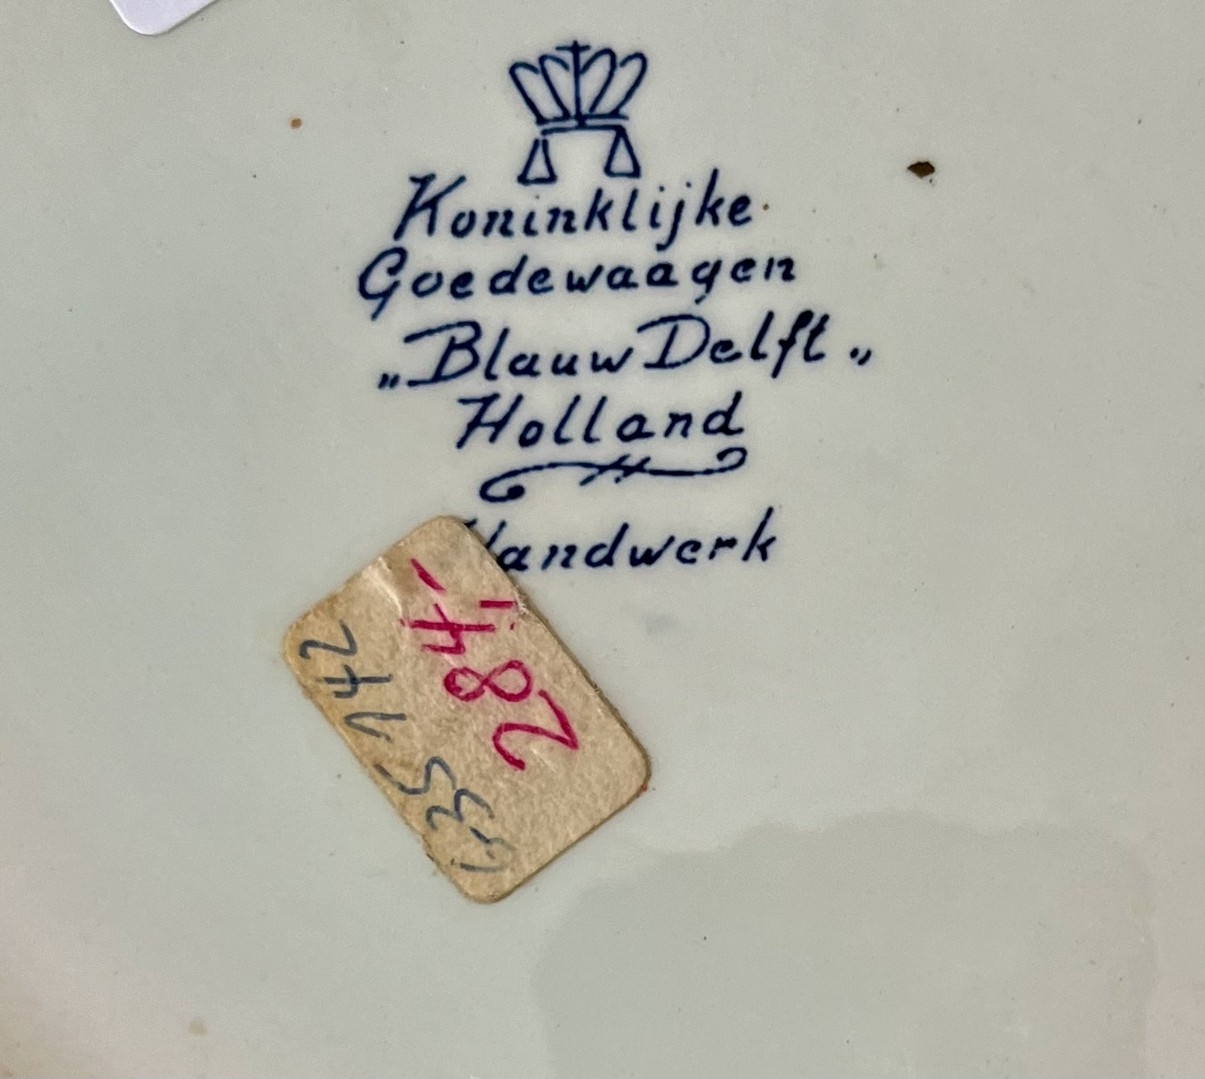 Koninklijke
Goedewaagen
„Blauw Delft„
Holland
Handwerk